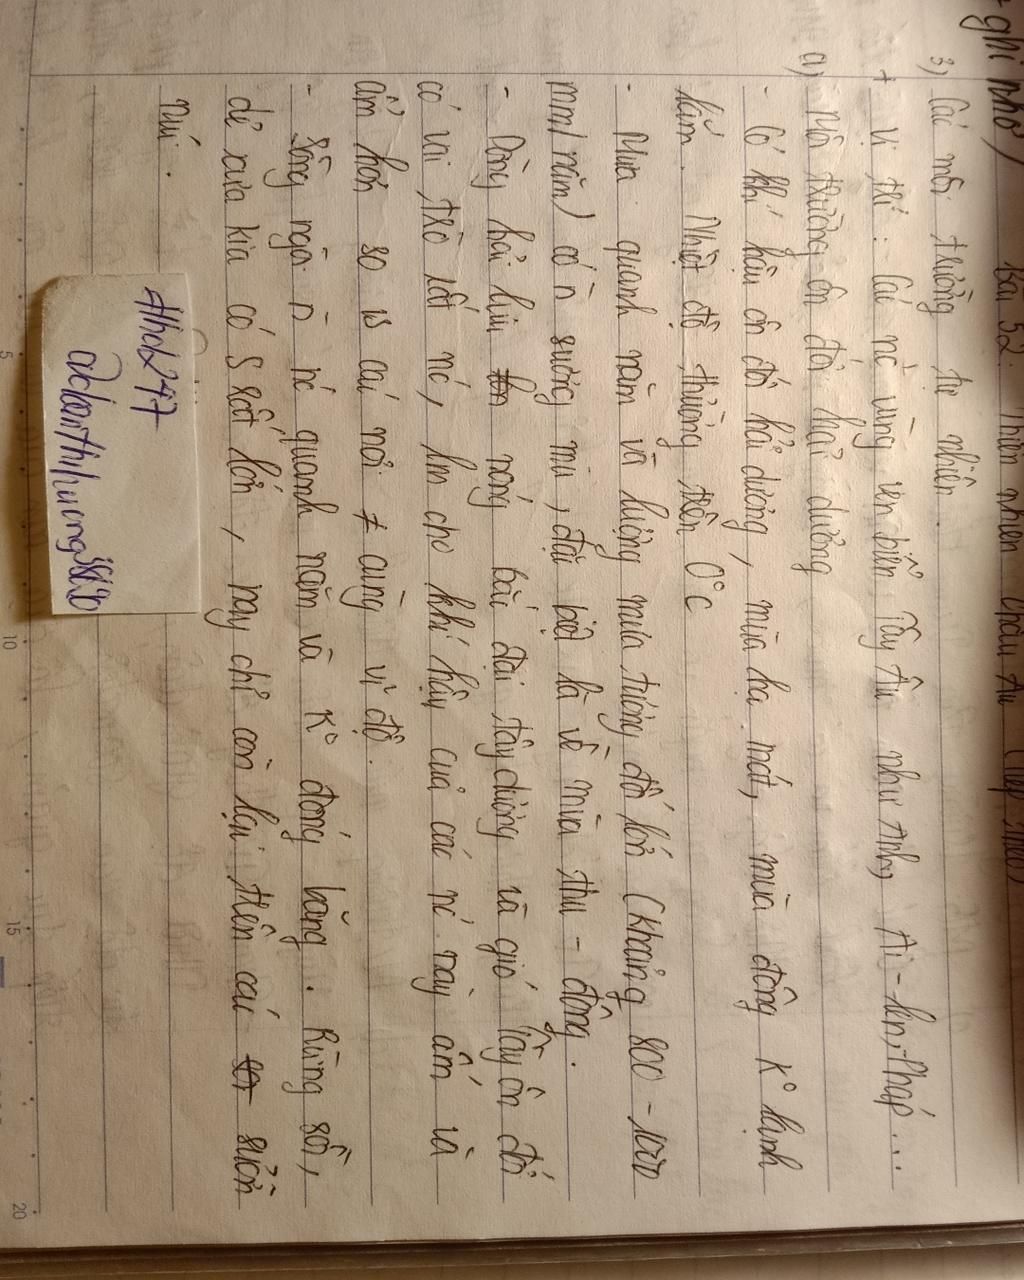 ghi nhớ)
Bài 52: Thiên nhiên Châu Âu (tiếp theo)
3) Các môi trường tự nhiên.
a) Môi trường ôn đới hải dương
+ Vị trí: Các nc vùng ven biển Tây Âu như Anh, Ai-len, Pháp...
- Có khí hậu ôn đới hải dương, mùa hạ mát, mùa đông K° lạnh
lắm. Nhiệt độ thường trên 0°C
- Mưa quanh năm và lượng mưa tương đối lớn (khoảng 800 - 1000
mm/năm) có n̄ sương mù, đặc biệt là về mùa thu - đông.
- Dòng hải lưu nóng bắc đại tây dương và gió Tây ôn đới
có vai trò rất , lm cho khí hậu của các nc này ấm và
ẩm hơn so vs các nơi ≠ cùng vĩ độ.
- Sông ngòi n̄ nc quanh năm và K° đóng băng. Rừng sồi,
dẻ xưa kia có S rất lớn, nay chỉ còn lại trên các sườn
núi.
thdz247